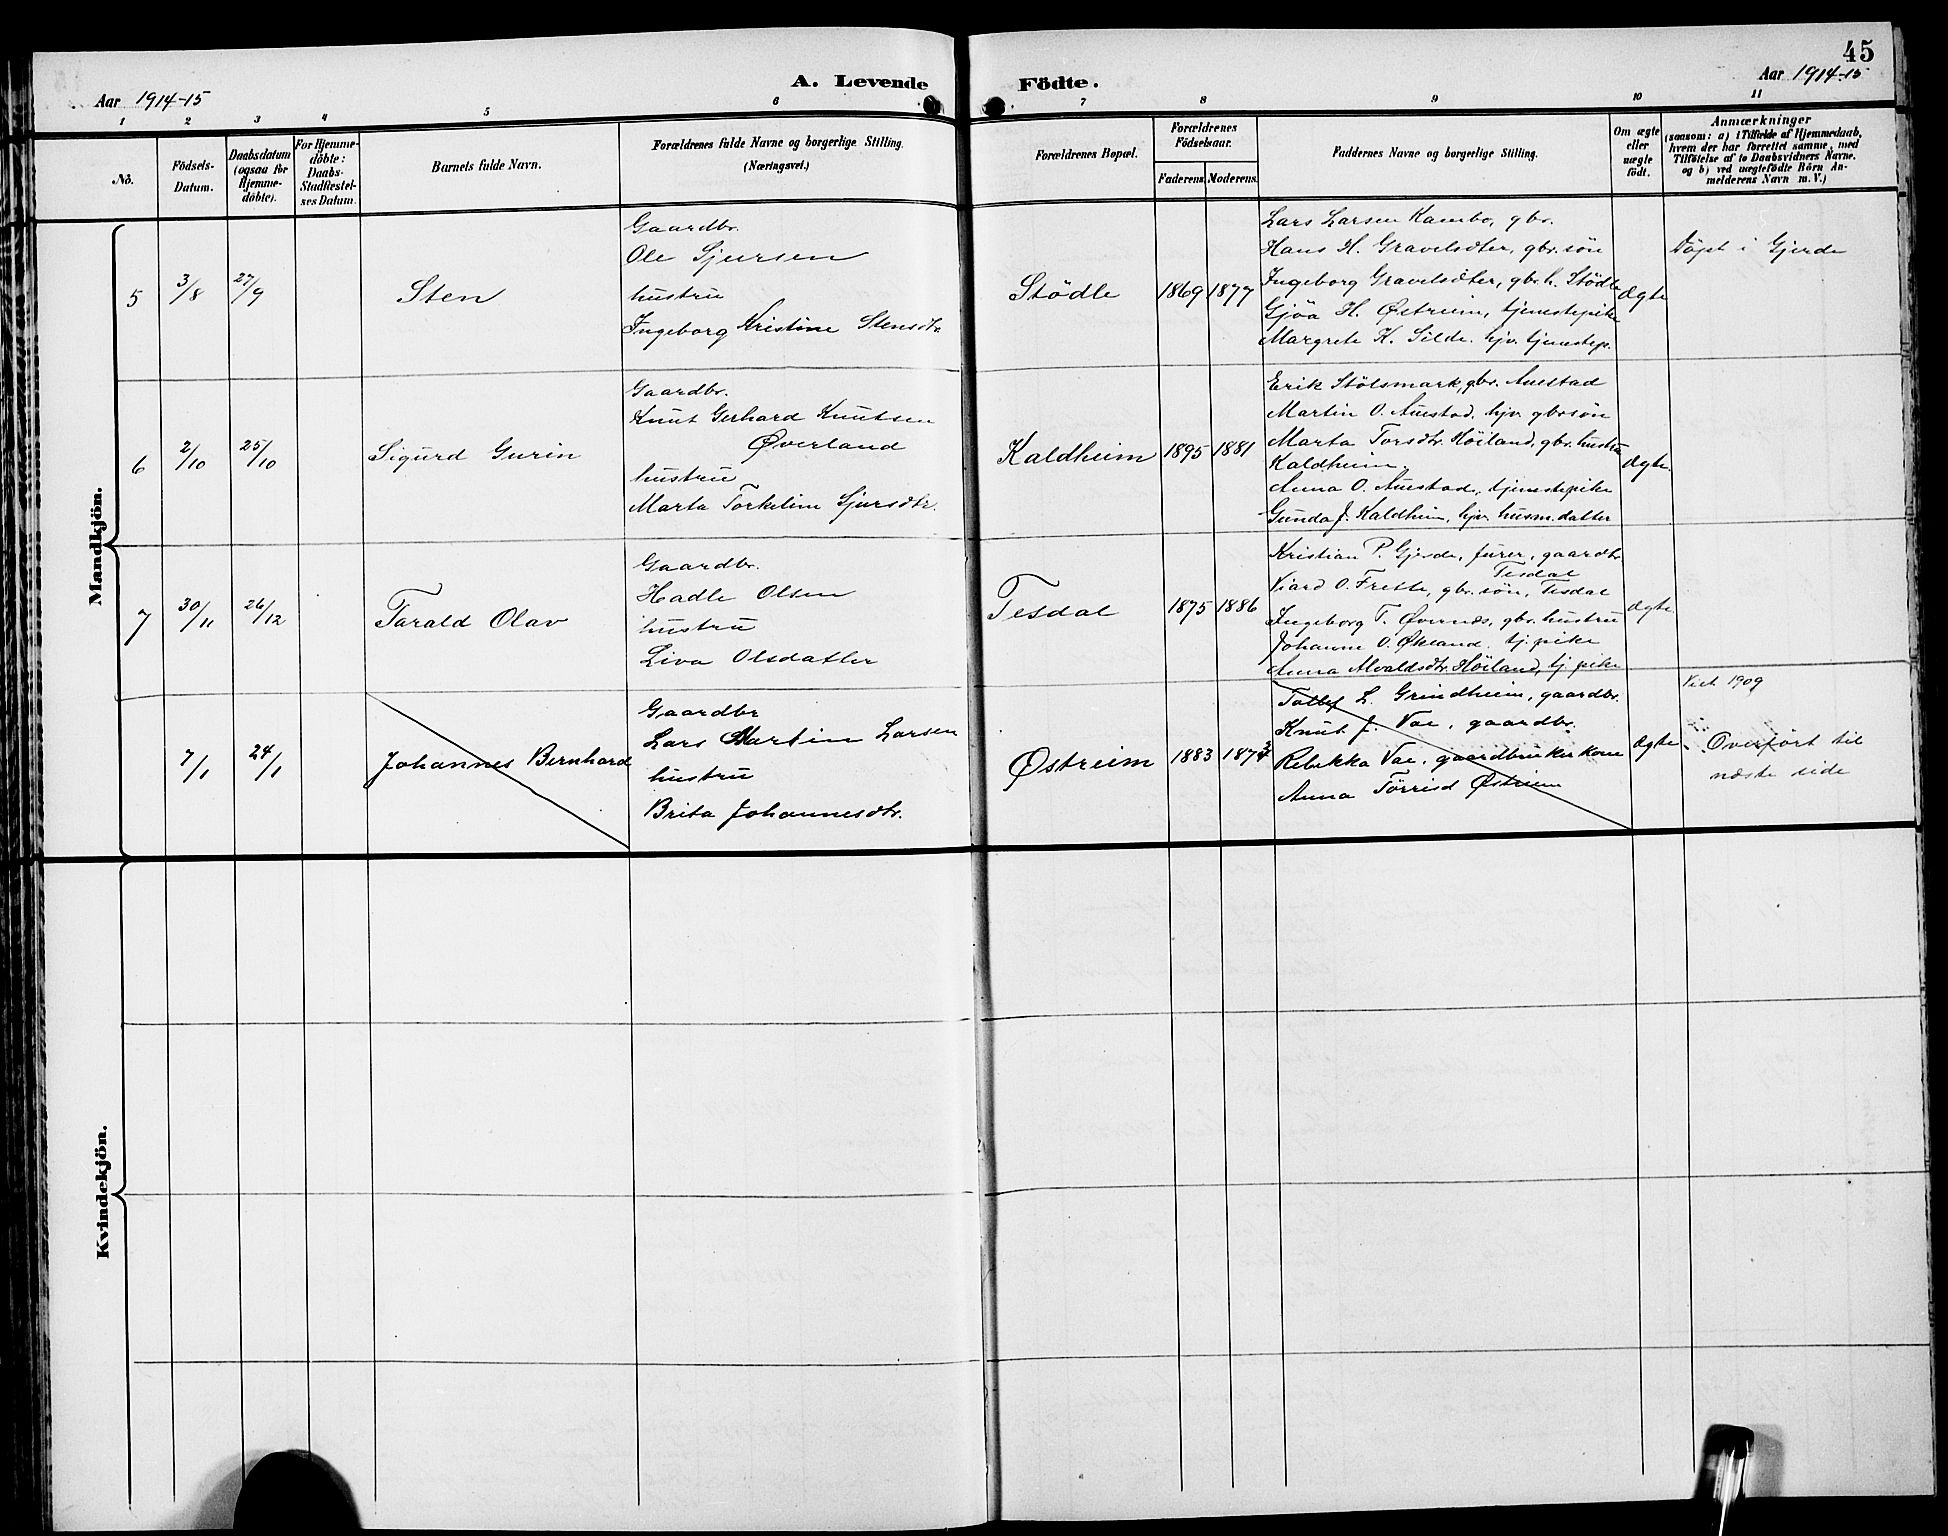 45
Aar 1914-15
A. Levende Födte.
Aar 1914-15
1 2 3 4 5 6 7 8 9 10 11
No.
Födsels-
Datum.
Daabsdatum
(ogsaa for
Hjemme-
döbte).
For Hjemme-
döbte:
Daabs-
Stadfæstel-
ses Datum.
Barnets fulde Navn.
Forældrenes fulde Navne og borgerlige Stilling.
(Næringsvei.)
Forældrenes Bopæl.
Forældrenes
Födselsaar.
Faderens. Moderens.
Faddernes Navne og borgerlige Stilling.
Om ægte
eller
uægte
födt.
Anmærkninger
(saasom: a) i Tilfælde af Hjemmedaab,
hvem der har forrettet samme, med
Tilföielse af to Daabsvidners Navne.
og b) ved uægtefödte Börn An-
melderens Navn m. V.)
Mandkjön.
5
3/8
27/9
Sten
Gaardbr.
Ole Sjursen
hustru
Ingeborg Kristine Stensdtr
Stödle
1869
1877
Lars Larsen Kambo, gbr.
Hans H. Gravelsæter, gbr. sön
Ingeborg Gravelsæter, gbr. h. Stödle
Gjöa H. Østreim, tjenestepike
Margrete K. Silde. hjv. tjenestep.
Ægte
Döpt i Gjerde
6
2/10
25/10
Sigurd Gurin
Gaardbr.
Knut Gerhard Knutsen
Øverland
hustru
Marta Torkeline Sjursdtr.
Kaldheim
1895
1881
Erik Stölsmark, gbr. Auestad
Martin O. Auestad. hjv. gbr sön
Marta Torsdtr. Höiland, gbr. hustru
Kaldheim.
Anna O. Auestad, tjenestepike
Gunda J. Kaldheim, hjv. husm. datter
Ægte.
7
30/11
26/12
Tarald Olav
Gaardbr.
Hadle Olsen
hustru
Liva Olsdatter
Tesdal
1875
1886
Kristian P. Gjerde, furer, gaardbr
Tesdal
Viard O. Frette, gbr. sön, Tesdal
Ingeborg T. Øvernes, gbr. hustru
Johanne O. Økland. tj. pike
Anna Alvaldsdtr. Höiland, tj. pike
Ægte
7/1
24/1
Johannes Bernhard
Gaardbr
Lars Martin Larsen
hustru
Brita Johannesdtr.
Østreim
1883
1874
Tollef L. Grindheim, gaardbr.
Knut J. Vae, gaardbr.
Rebekka Vae, gaardbruker kone
Anna Törrisd Østreim
Ægte
Viet 1909
Overfört til
næste side
Kvindekjön.